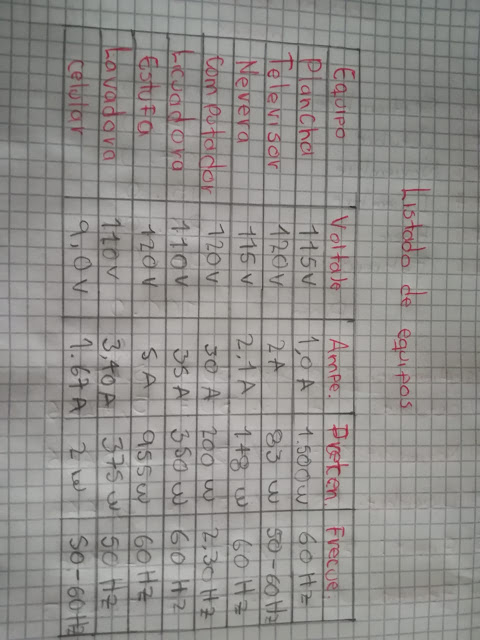 Listado de equipos
Equipo Voltaje Ampe. Poten. Frecue.
Plancha 115V 1,0 A 1.500W 60 Hz
Televisor 120V 2A 83 W 50-60Hz
Nevera 115V 2,1 A 148 W 60 Hz
Computador 120V 30 A 200 W 2,30 Hz
Licuadora 110V 35 A 350 W 60 Hz
Estufa 120V 5 A 955W 60 Hz
Lavadora 110V 3,40A 375W 50 Hz
Celular 9,0V 1.67A 2 W 50-60Hz